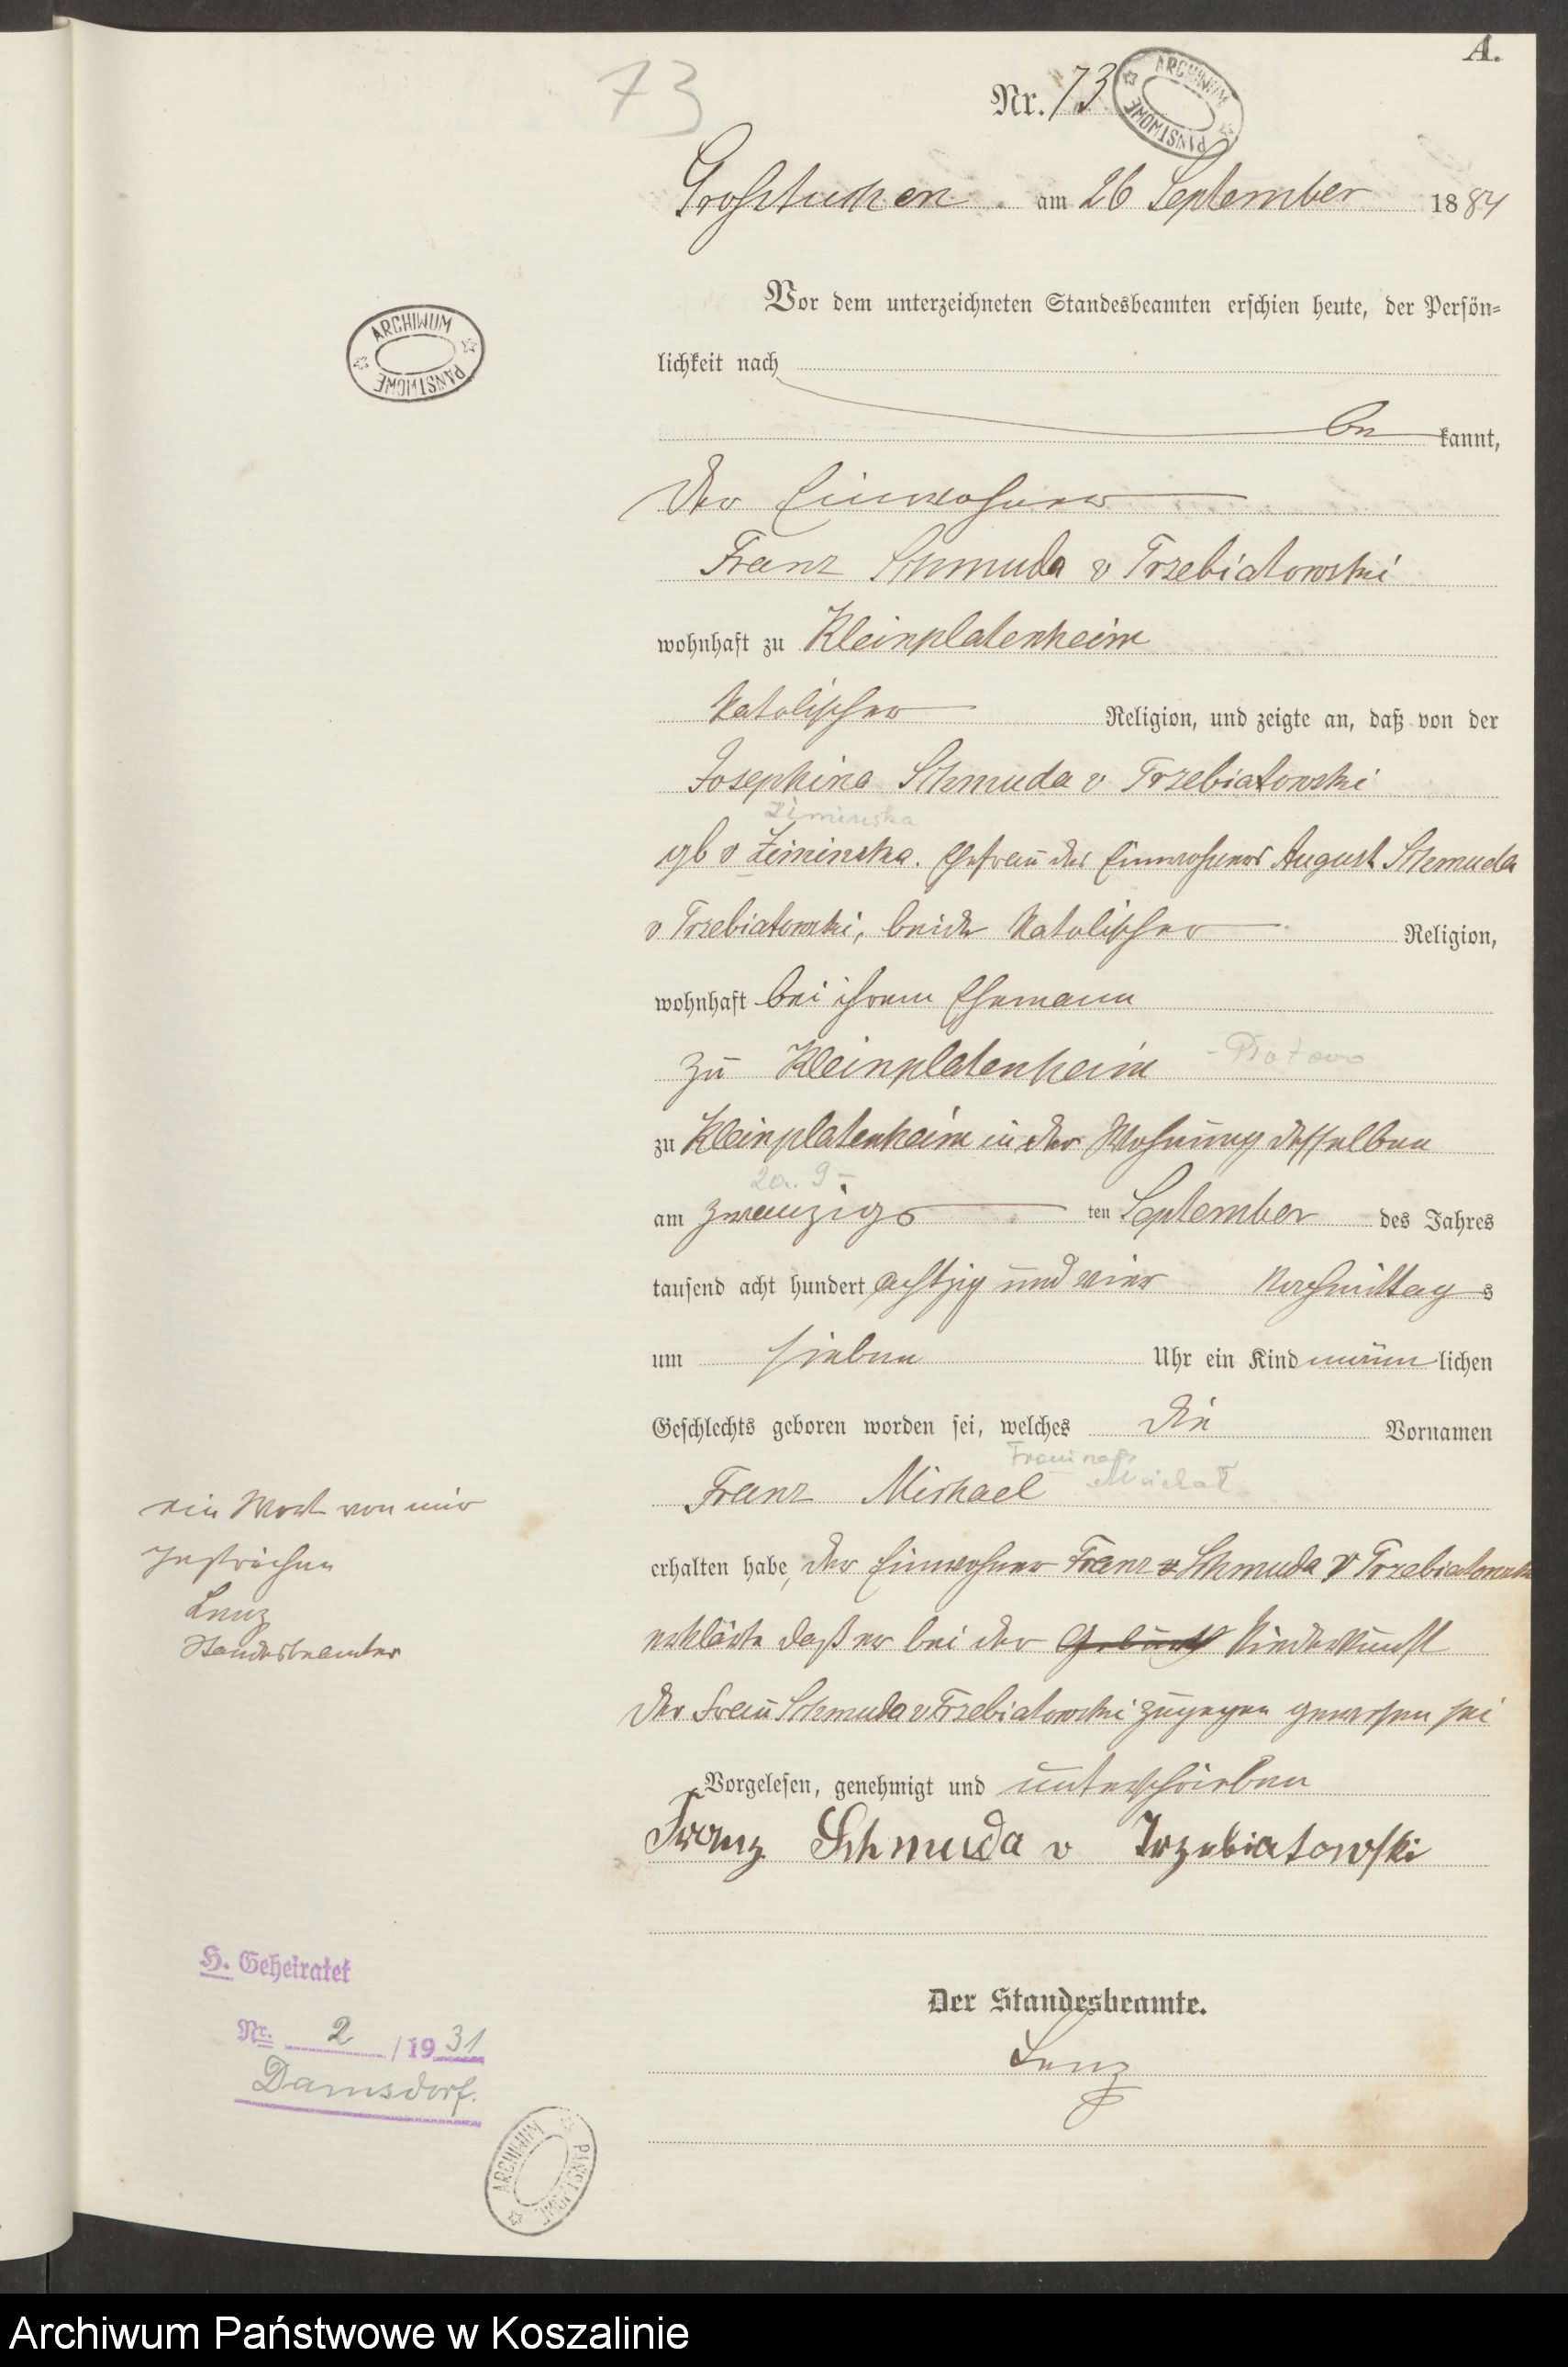 A.
73
Nr. 73
ARCHIWUM PAŃSTWOWE
Großtuchen am 26 September 1884
Vor dem unterzeichneten Standesbeamten erschien heute, der Persön-
lichkeit nach
be kannt,
ARCHIWUM PAŃSTWOWE
der Einwohner
Franz Schmuda v Trzebiatowski
wohnhaft zu Kleinplatenheim
katolischer Religion, und zeigte an, daß von der
Josephina Schmuda v Trzebiatowski
Ziminska
gb v Ziminska. Ehefrau des Einwohners August Schmuda
v Trzebiatowski, beide katolischer Religion,
wohnhaft bei ihrem Ehemann
zu Kleinplatenheim
zu Kleinplatenheim in der Wohnung desselben
20. 9
am zwanzigs ten September des Jahres
tausend acht hundert achtzig und vier Nachmittag s
um sieben Uhr ein Kind männ lichen
Geschlechts geboren worden sei, welches die Vornamen
Franz Michael
erhalten habe, der Einwohner Franz Schmuda v Trzebiatowski
erklärte daß er bei der Geburt Niederkunft
der Frau Schmuda v Trzebiatowski zugegen gewesen sei
Vorgelesen, genehmigt und unterschrieben
Franz Schmuda v Trzebiatowski
ein Wort von mir
gestrichen
Lenz
Standesbeamter
Der Standesbeamte.
Lenz
H. Geheiratet
Nr. 2 / 1931
Damsdorf.
ARCHIWUM PAŃSTWOWE
Archiwum Państwowe w Koszalinie